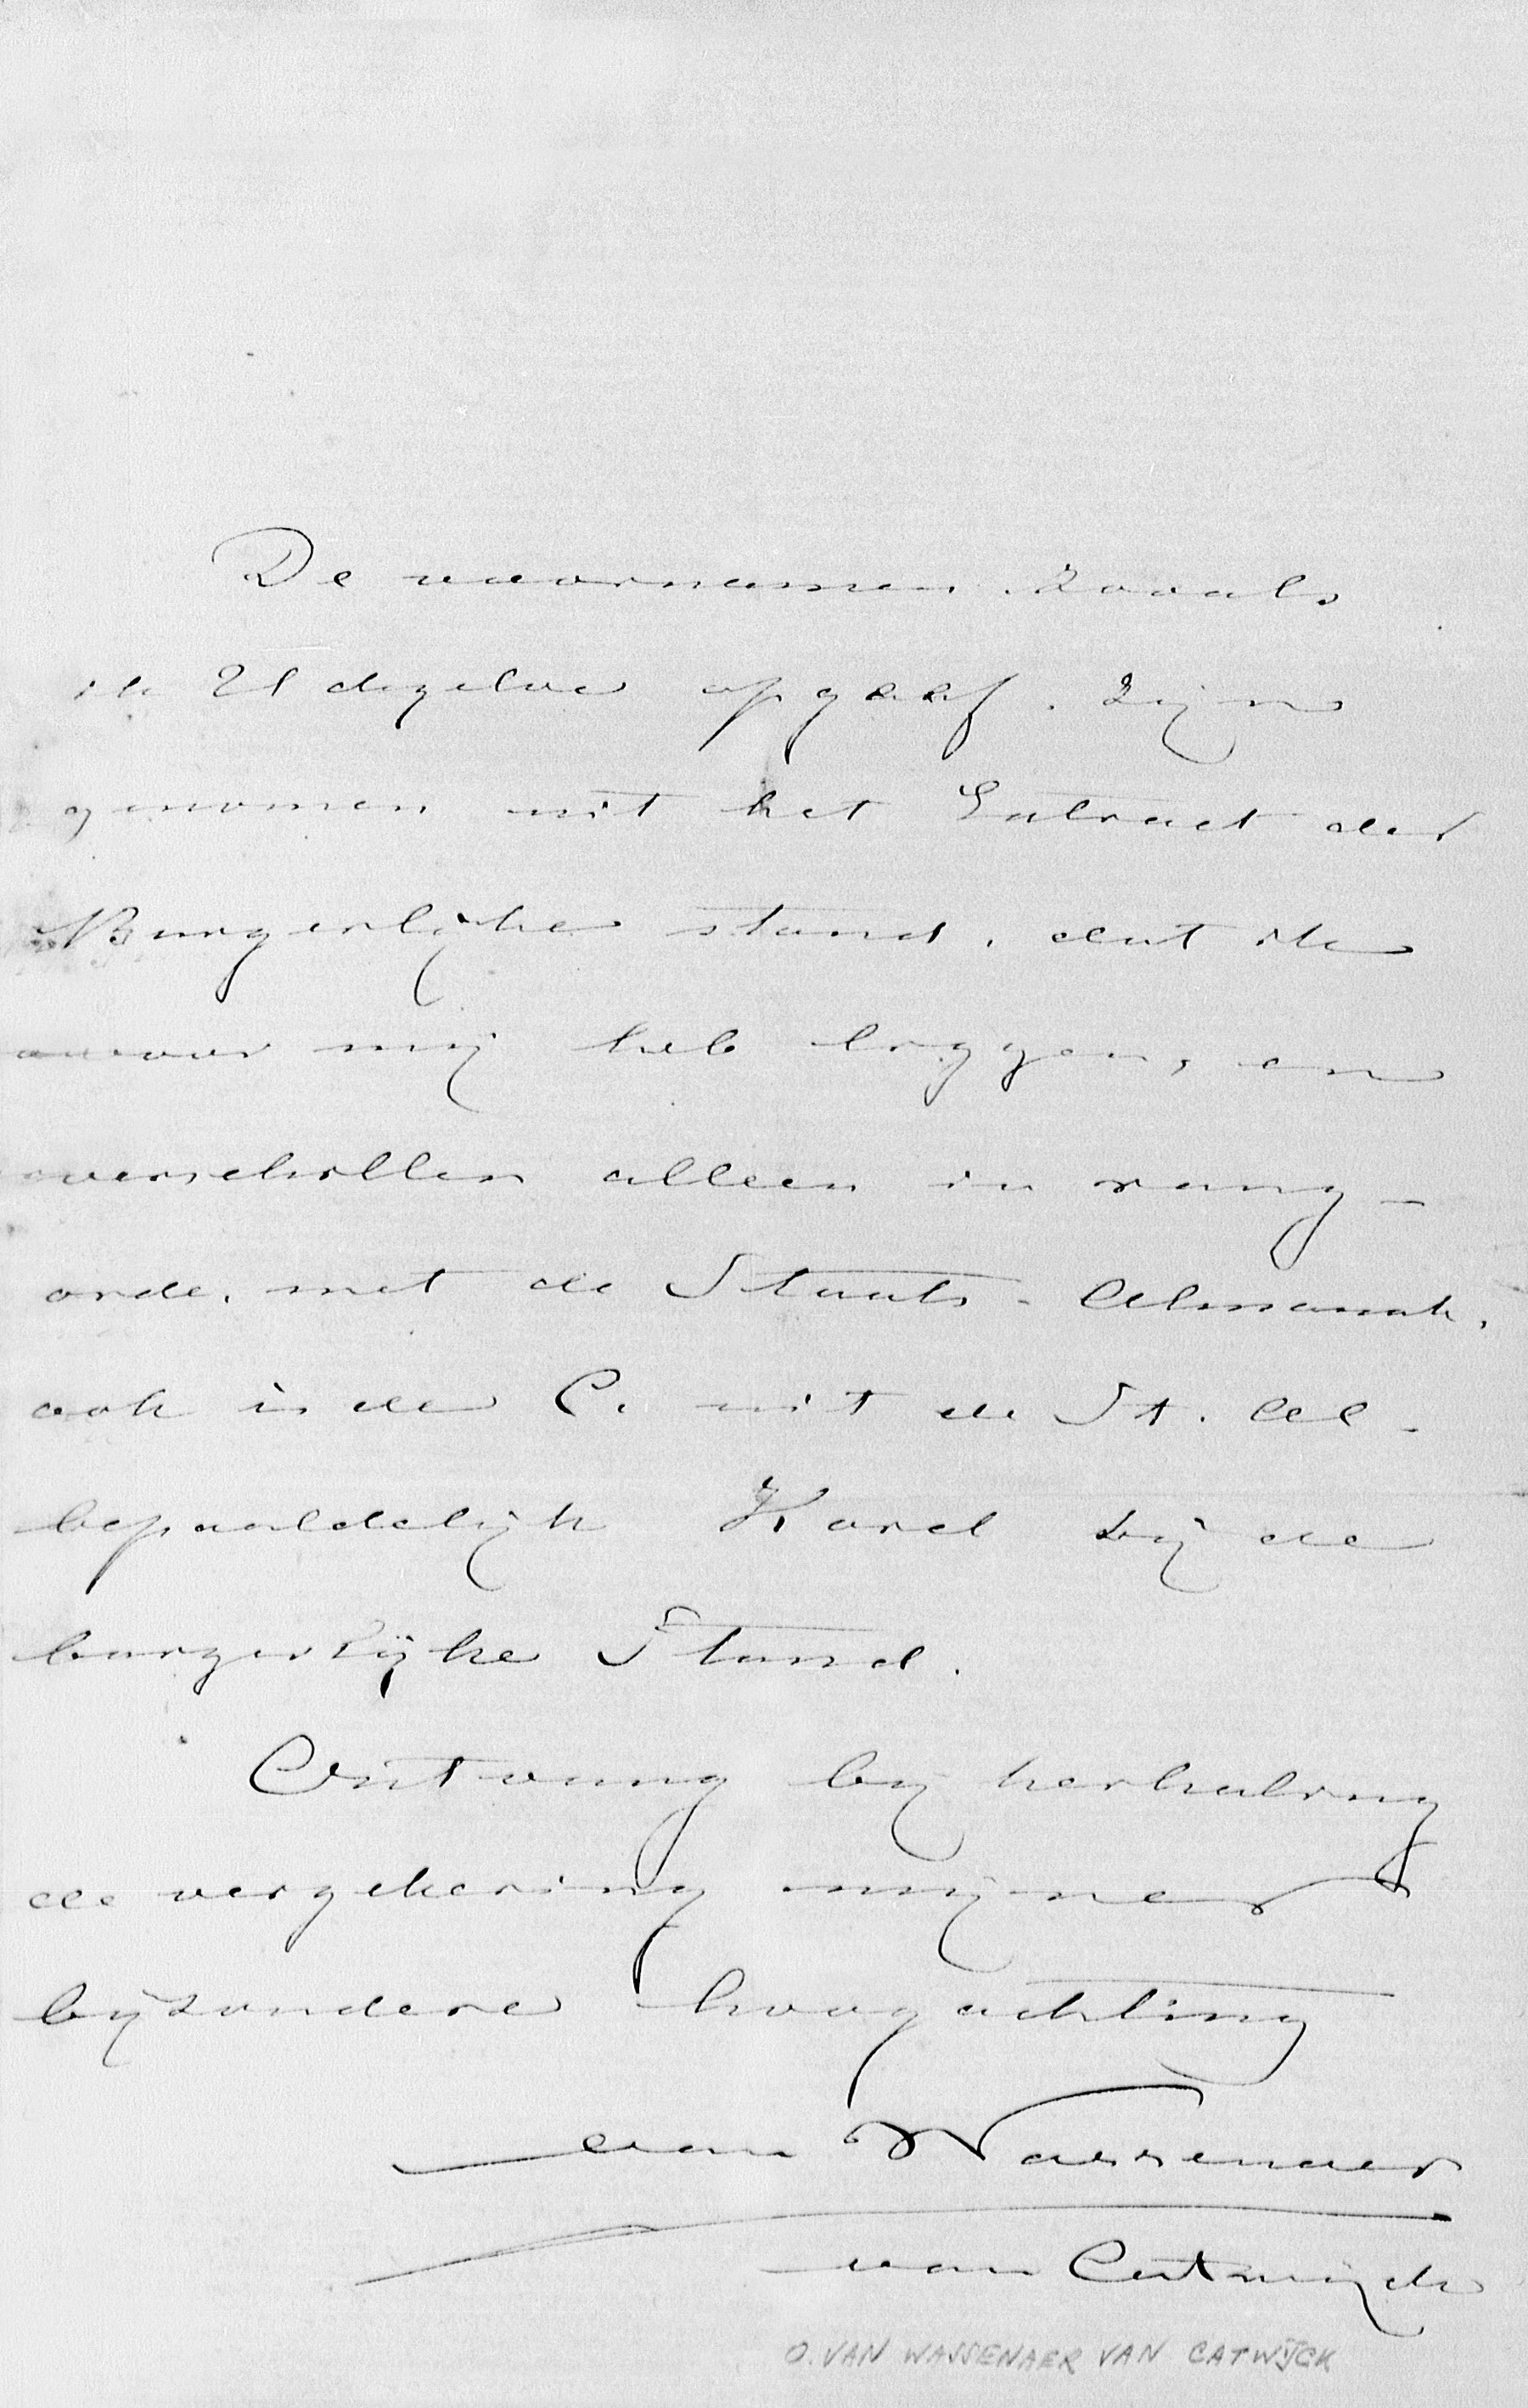 De voornamen zooals
ik U dezelve opgeef. zijn
genomen uit het Extract der
Burgerlijke stand. dat ik
voor mij heb liggen, en
verschillen alleen in rang-
orde. met de Staats-Almanak.
ook is de C. uit de St. Al-
bepaaldelijk Karel bij de
burgerlijke Stand.
Ontvang bij herhaling
de verzekering mijner
bijzondere hoogachting
van Wassenaer
van Catwijck
O. VAN WASSENAER VAN CATWIJCK